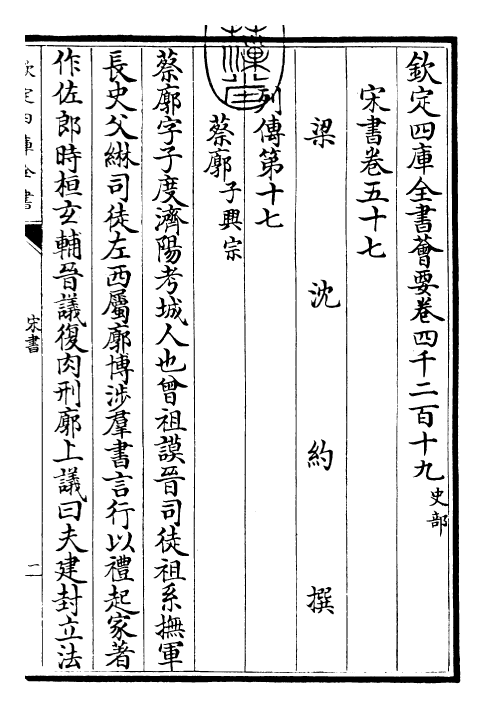 欽定四庫全書薈要卷四千二百十九 史部
宋書卷五十七
梁 沈 約 撰
列傳第十七
蔡廓 子興宗
蔡廓字子度濟陽考城人也曾祖謨晉司徒祖系撫軍
長史父綝司徒左西屬廓博涉羣書言行以禮起家著
作佐郎時桓玄輔晉議復肉刑廓上議曰夫建封立法
欽定四庫全書
宋書